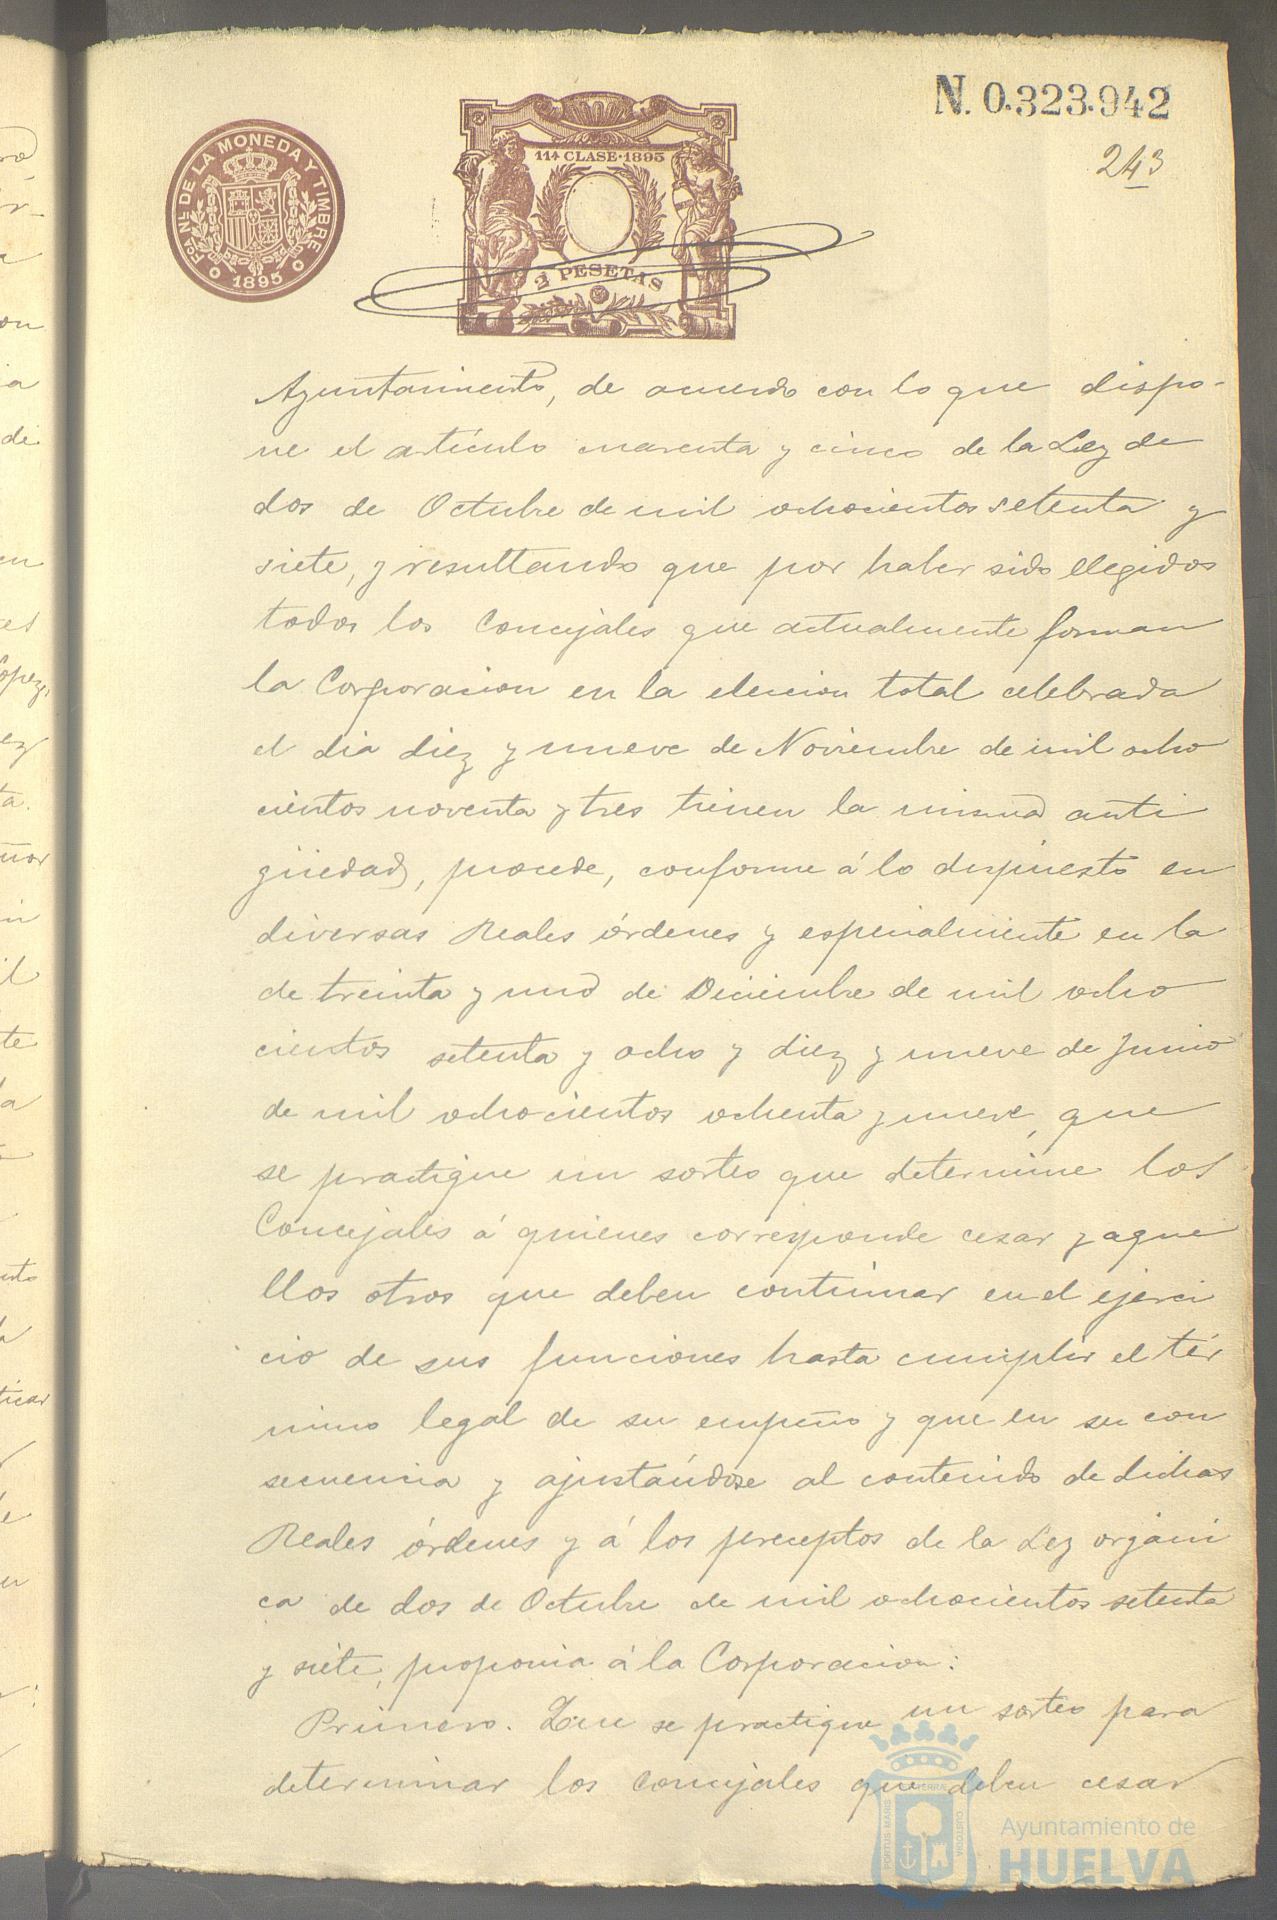 N. 0.323.942
243
FCA. NL. DE LA MONEDA Y TIMBRE
1895
11ª CLASE·1895
2 PESETAS
Ayuntamiento, de acuerdo con lo que dispo-
ne el artículo cuarenta y cinco de la Ley de
dos de Octubre de mil ochocientos setenta y
siete, y resultando que por haber sido elegidos
todos los Concejales que actualmente forman
la Corporacion en la eleccion total celebrada
el dia diez y nueve de Noviembre de mil ocho
cientos noventa y tres tienen la misma anti
güedad, procede, conforme á lo dispuesto en
diversas Reales órdenes y especialmente en la
de treinta y uno de Diciembre de mil ocho
cientos setenta y ocho y diez y nueve de Junio
de mil ochocientos ochenta y nueve, que
se practique un sorteo que determine los
Concejales á quienes corresponde cesar y aque
llos otros que deben continuar en el ejerci
cio de sus funciones hasta cumplir el tér
mino legal de su empeño y que en su con
secuencia y ajustándose al contenido de dichas
Reales órdenes y á los preceptos de la Ley orgáni
ca de dos de Octubre de mil ochocientos setenta
y siete, proponia á la Corporacion:
Primero. Que se practique un sorteo para
determinar los Concejales que deben cesar
PORTUS MARIS
TERRAE
CUSTODIA
Ayuntamiento de
HUELVA